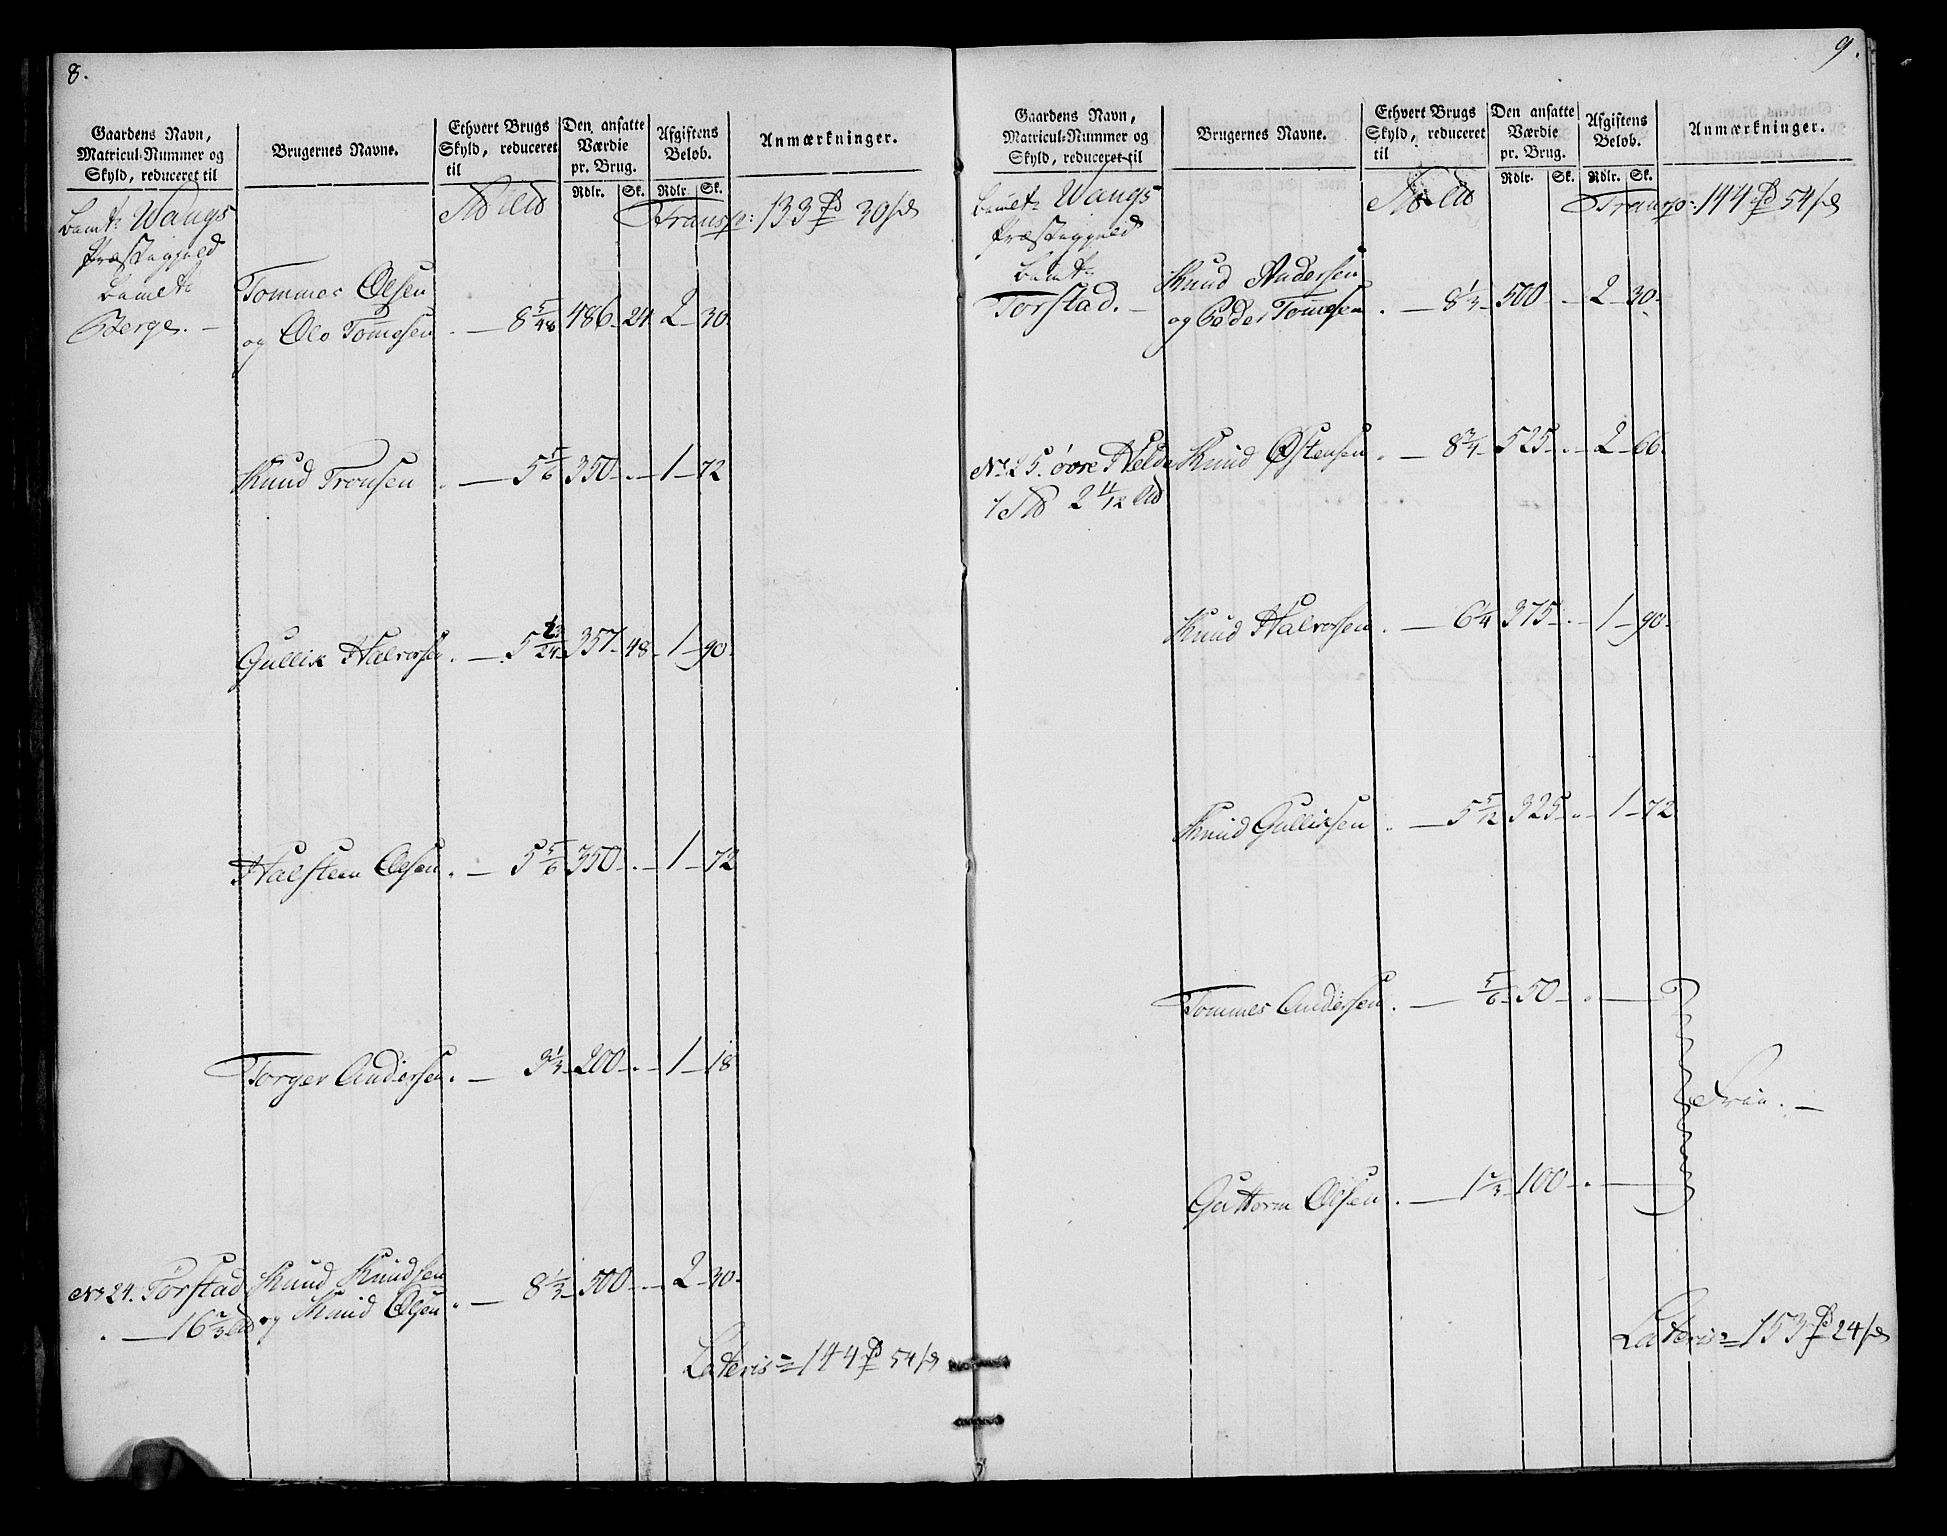 8.
Gaardens Navn,
Matricul-Nummer og
Skyld, reduceret til
Brugernes Navne.
Ethvert Brugs
Skyld, reduceret
til
Den ansatte
Værdie
pr. Brug.
Rdlr. Sk.
Afgiftens
Beløb.
Rdlr. Sk.
Anmærkninger.
Wangs
Præstegjeld
Berge. —
Transp: 133 Rd 30 sk
Tommes Olsen
og Ole Tom̄esen . — 8 5/48 486 - 24 2 - 30.
Knud Tronsen . — 5 5/6 350 - . - 1 - 72
Gullik Halvorsen . — 5 23/24 357 - 48 - 1 - 90.
Halsteen Olsen . — 5 5/6 350 - . - 1 - 72
Torger Andersen . — 3 1/3 200 - . - 1 - 18
No 24. Torstad Knud Knudsen
. — 16 2/3 og Knud Olsen . — 8 1/3 500 - . - 2 - 30.
Lateris = 144 Rd 54 sk
9.
Gaardens Navn,
Matricul-Nummer og
Skyld, reduceret til
Brugernes Navne.
Ethvert Brugs
Skyld, reduceret
til
Den ansatte
Værdie
pr. Brug.
Rdlr. Sk.
Afgiftens
Beløb.
Rdlr. Sk.
Anmærkninger.
Wangs
Præstegjeld
Torstad. —
Transp: 144 Rd 54 sk
Knud Andersen
og Peder Tom̄esen . — 8 1/3 500 - 2 - 30.
No 25. øvre Helde Knud Østensen . — 8 3/4 525 - . - 2 - 66.
1 2 11/12
Knud Halvorsen . — 6 1/4 375 - . - 1 - 90.
Knud Gulliksen . — 5 5/12 325 - . - 1 - 72
Tommes Andersen . — 5/6 50 - . —
Frie. —
Guttorm Olsen . — 1 2/3 100 - . —
Lateris = 153 Rd 24 sk